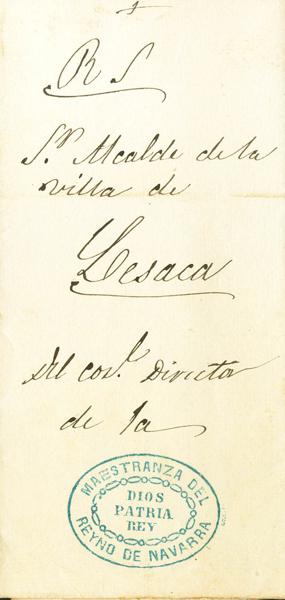 R S
Sr. Alcalde de la
villa de
Lesaca
Del Director
de la
MAESTRANZA DEL
DIOS
PATRIA
REY
REYNO DE NAVARRA